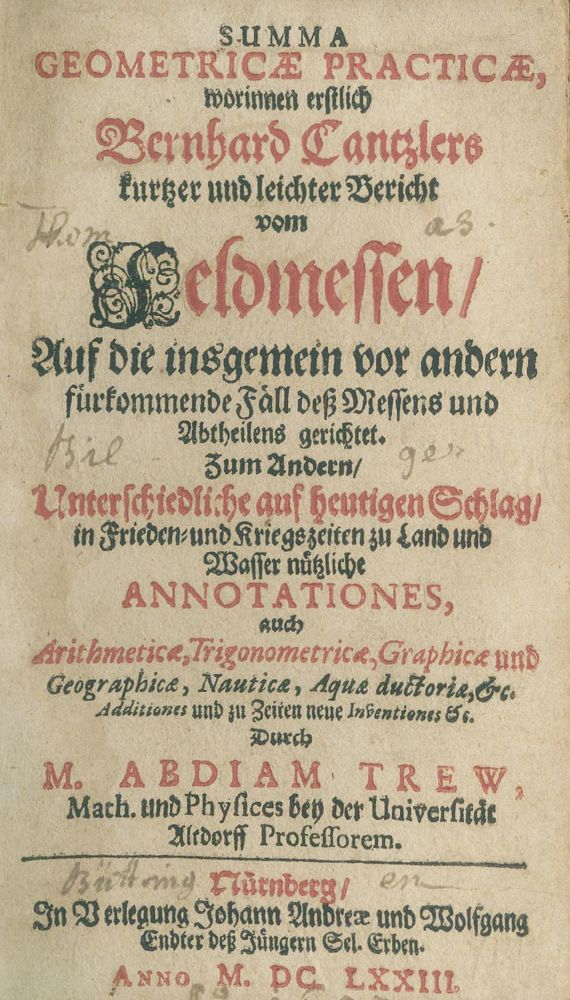 SUMMA
GEOMETRICÆ PRACTICÆ,
worinnen erstlich
Bernhard Cantzlers
kurtzer und leichter Bericht
vom
Thom as.
Feldmessen/
Auf die insgemein vor andern
fürkommende Fäll deß Messens und
Abtheilens gerichtet.
Bil ger
Zum Andern/
Unterschiedliche auf heutigen Schlag/
in Frieden- und Kriegszeiten zu Land und
Wasser nützliche
ANNOTATIONES,
auch
Arithmeticæ, Trigonometricæ, Graphicæ und
Geographicæ, Nauticæ, Aquæ ductoriæ, &c.
Additiones und zu Zeiten neue Inventiones &c.
Durch
M. ABDIAM TREW,
Mach. und Physices bey der Universität
Altdorff Professorem.
Nürnberg/
In Verlegung Johann Andreæ und Wolfgang
Endter deß Jüngern Sel. Erben.
ANNO M. DC. LXXIII.